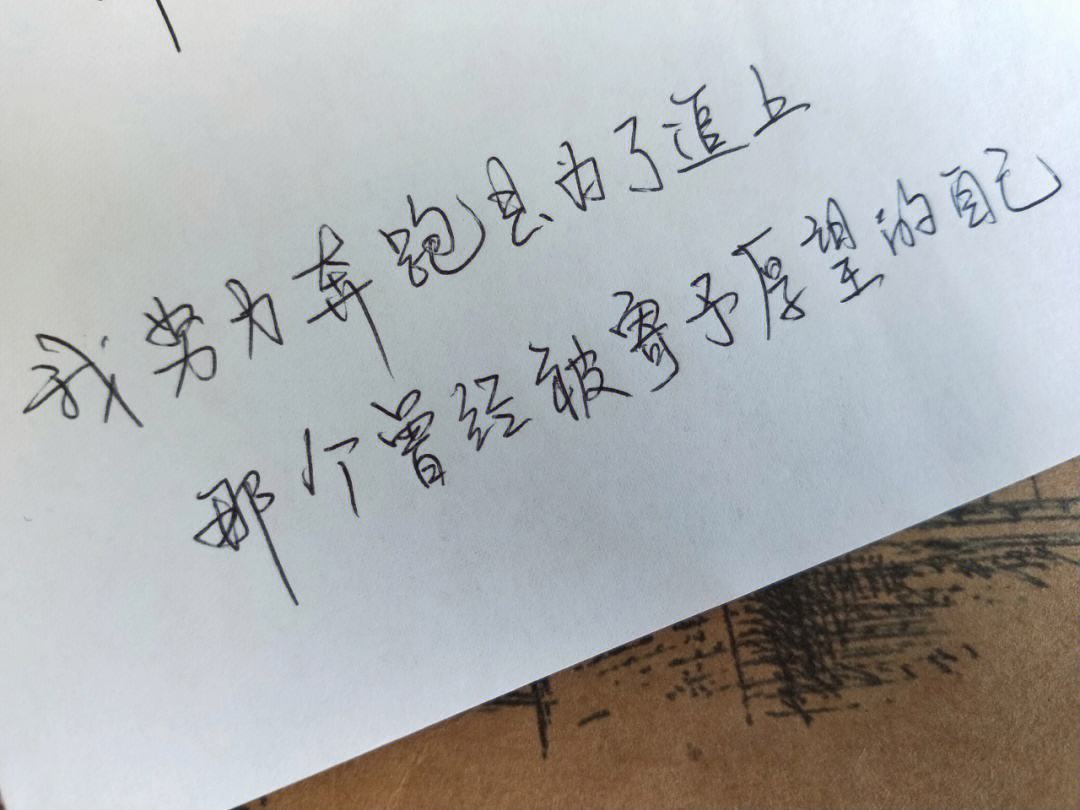 我努力奔跑是为了追上
那个曾经被寄予厚望的自己